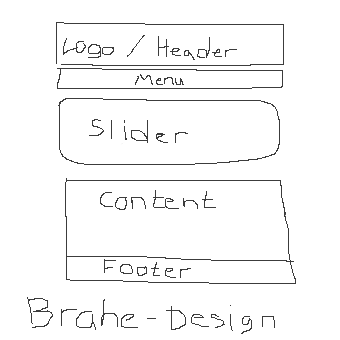 Logo / Header
Menu
Slider
Content
Footer
Brahe-Design